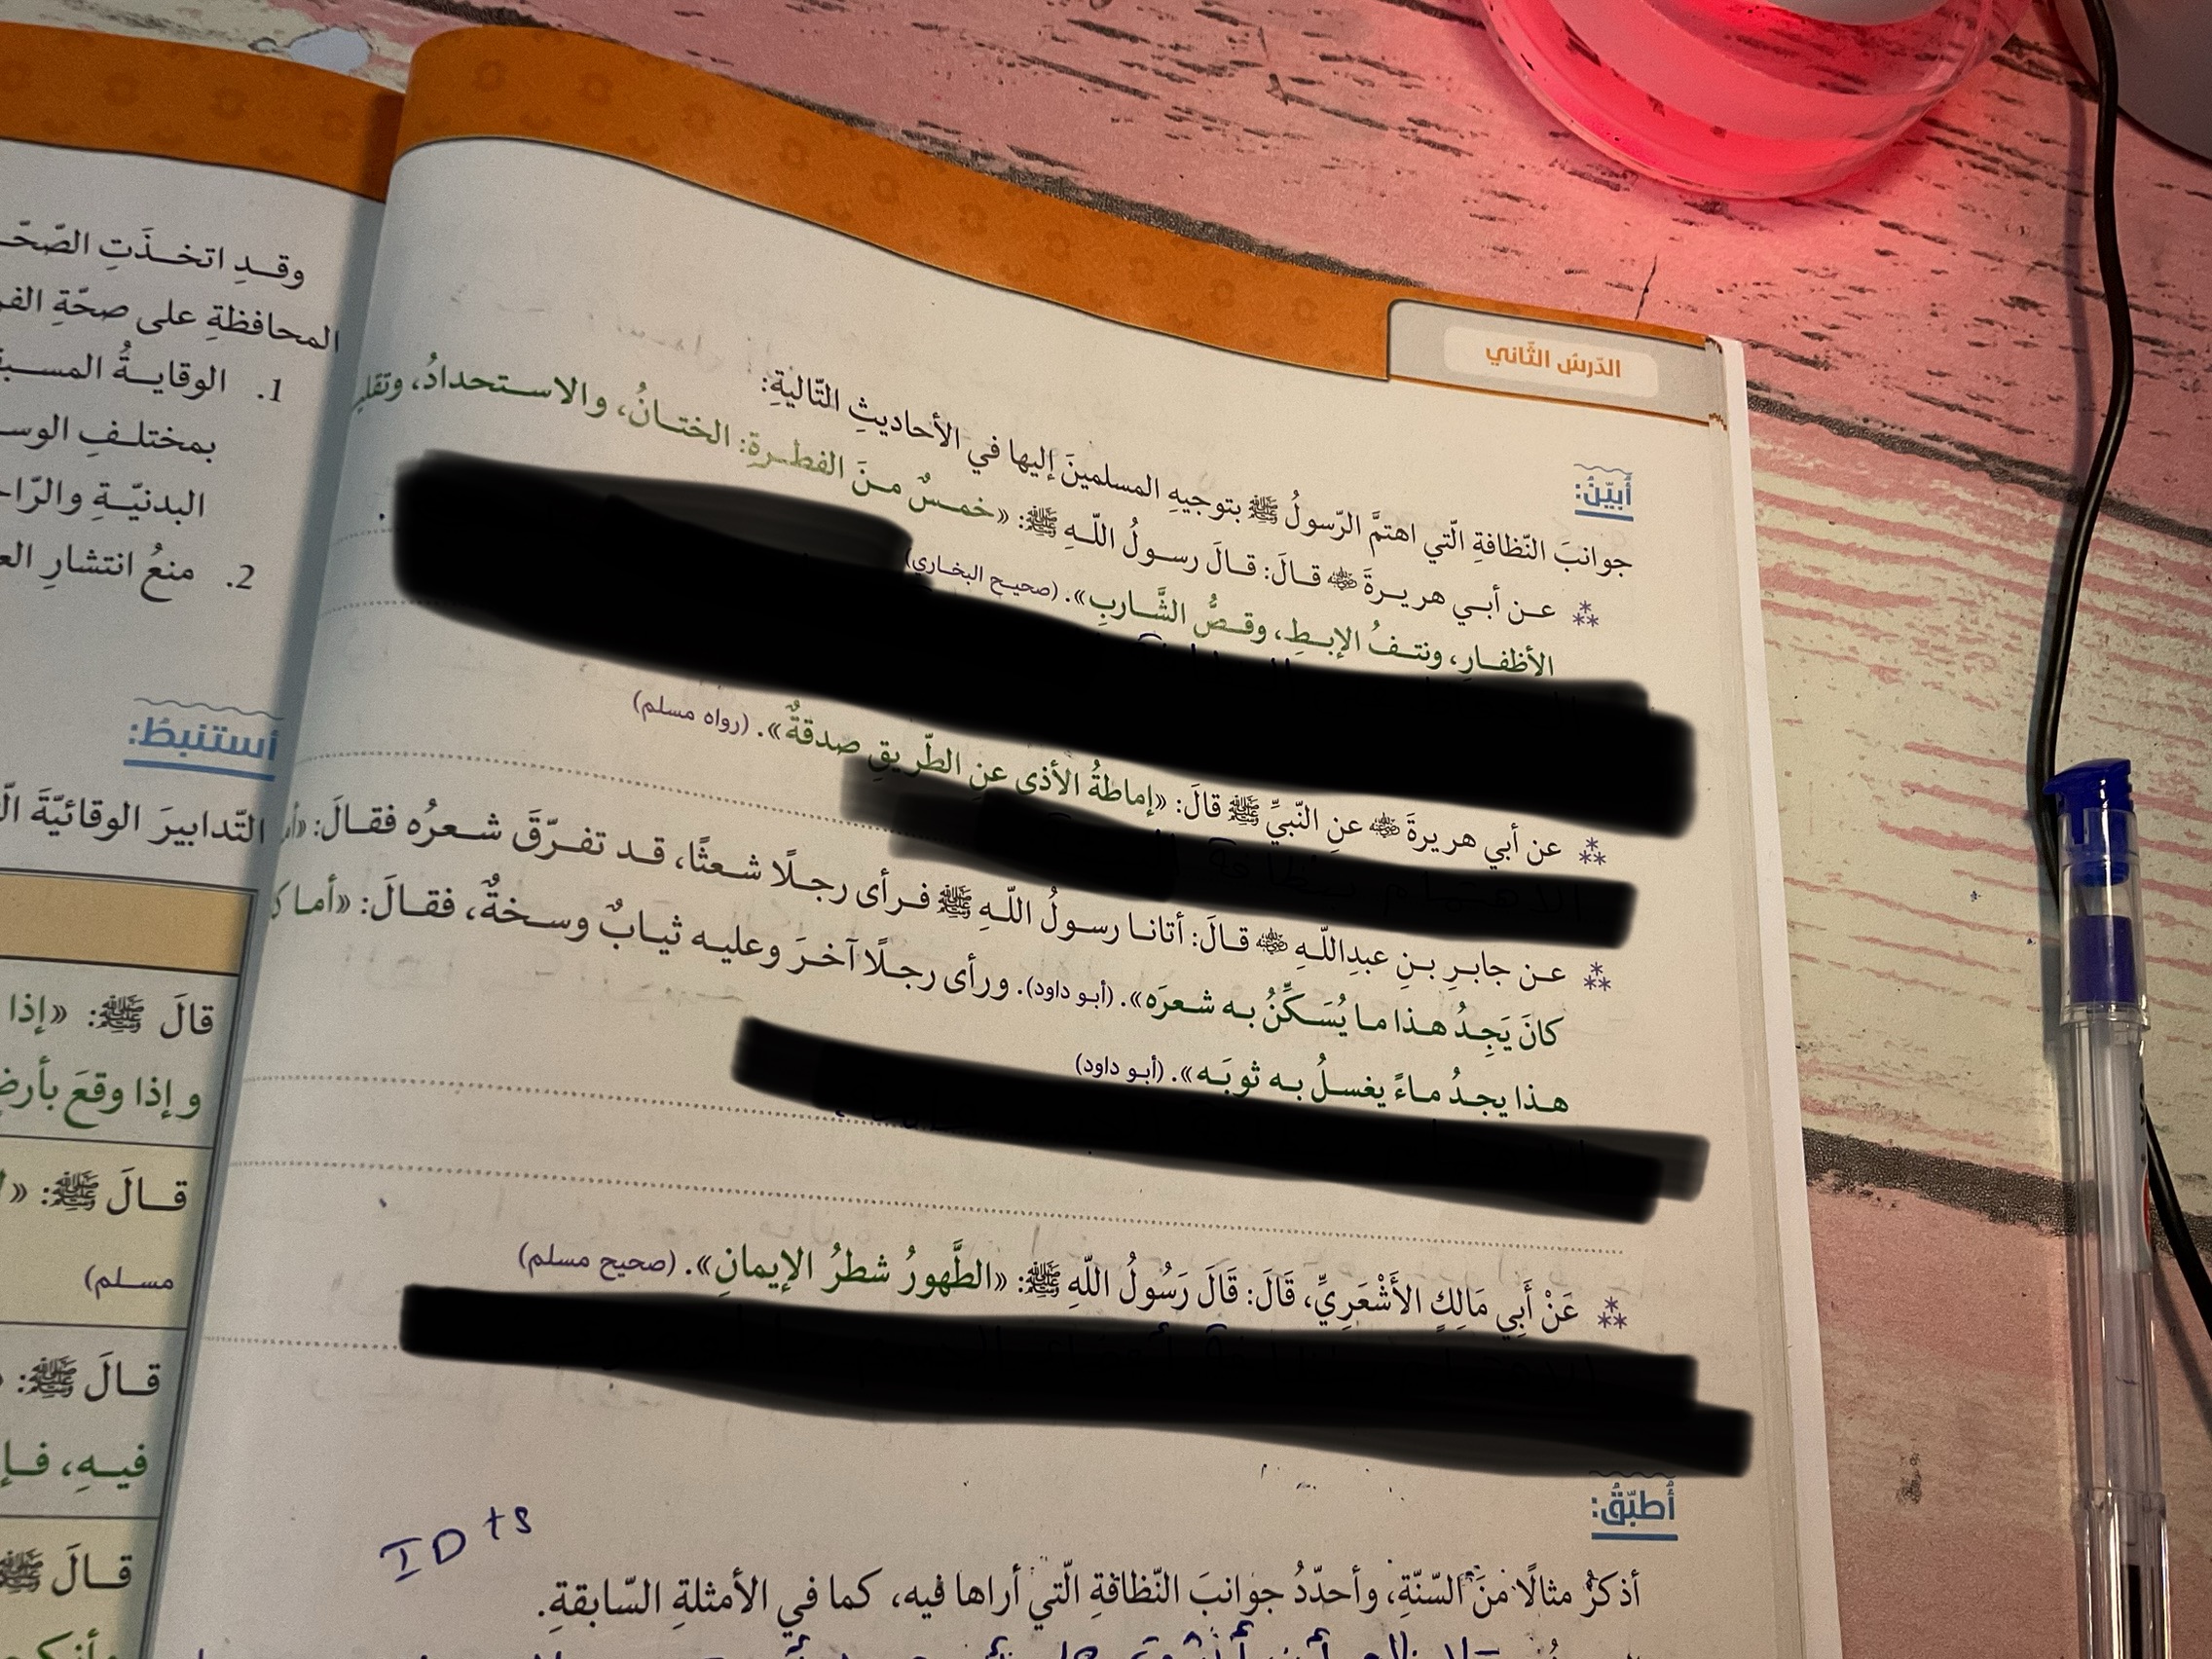 الدّرسُ الثّاني
أُبيّنُ:
جوانبَ النّظافةِ الّتي اهتمَّ الرّسولُ ﷺ بتوجيهِ المسلمينَ إليها في الأحاديثِ التّاليةِ:
⁂ عـن أبـي هريـرةَ قـالَ: قـالَ رسـولُ اللّـهِ ﷺ: «خمـسٌ مـنَ الفطـرةِ: الختـانُ، والاسـتحدادُ، وتقليـ
الأظفـارِ، ونتـفُ الإبـطِ، وقـصُّ الشَّـاربِ». (صحيـح البخـاري)
⁂ عن أبي هريرةَ عنِ النّبيِّ ﷺ قالَ: «إماطةُ الأذى عنِ الطّريقِ صدقةٌ». (رواه مسلم)
⁂ عـن جابـرِ بـنِ عبدِاللّـهِ قـالَ: أتانـا رسـولُ اللّـهِ ﷺ فـرأى رجـلًا شـعثًا، قـد تفـرّقَ شـعرُه فقـالَ:
كانَ يَجِـدُ هـذا مـا يُسَـكِّنُ بـه شـعرَه». (أبـو داود). ورأى رجـلًا آخـرَ وعليـه ثيـابٌ وسـخةٌ، فقـالَ: «أمـا
هـذا يجـدُ مـاءً يغسـلُ بـه ثوبَـه». (أبـو داود)
⁂ عَنْ أَبِي مَالِكٍ الأَشْعَرِيِّ، قَالَ: قَالَ رَسُولُ اللّهِ ﷺ: «الطَّهورُ شطرُ الإيمانِ». (صحيح مسلم)
أُطبّقُ:
ID +8
أذكرُ مثالًا منَ السّنّةِ، وأحدّدُ جوانبَ النّظافةِ الّتي أراها فيه، كما في الأمثلةِ السّابقةِ.
وقـدِ اتخـذَتِ
المحافظةِ على صحّةِ
1. الوقايـةُ
بمختلـفِ
البدنيّـةِ
2. منعُ انتشارِ
أستنبطُ:
التّدابيرَ الوقائيّةَ
قالَ ﷺ: «إذا
وإذا وقعَ
قـالَ ﷺ:
مسـلم)
قـالَ ﷺ:
فيـهِ،
قـالَ ﷺ